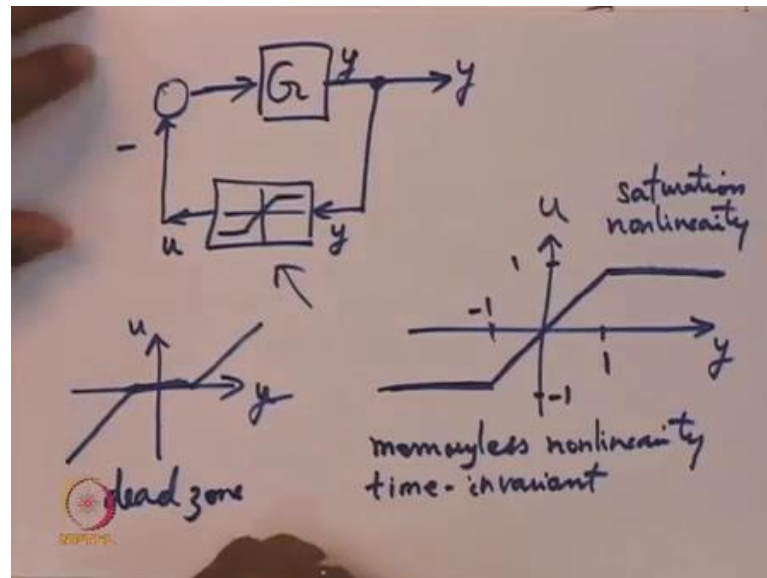 G
y
y
-
u
y
saturation
nonlinearity
u
1
-1
1
y
-1
u
y
memoryless nonlinearity
time-invariant
dead zone
NPTEL